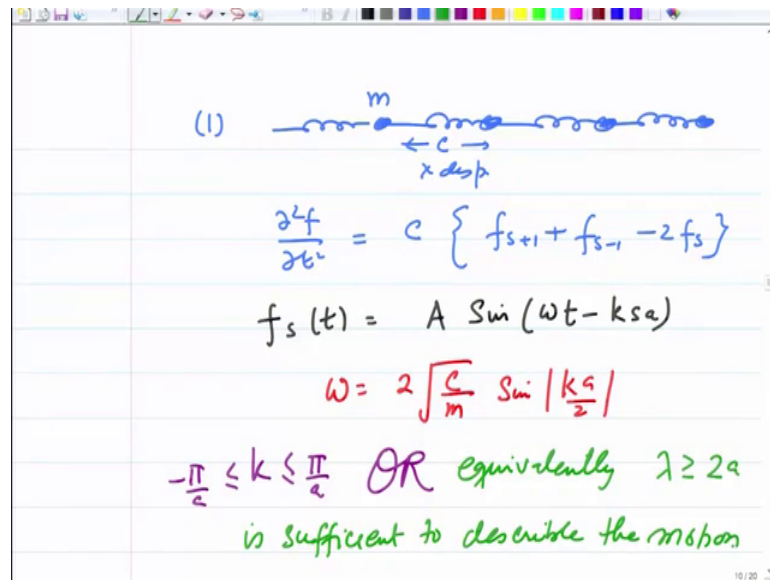 m
(1)
← C →
x disp
∂²f/∂t² = C { f_{s+1} + f_{s-1} - 2f_s }
f_s(t) = A Sin(ωt - ksa)
ω = 2√(C/m) Sin|ka/2|
-π/a ≤ k ≤ π/a OR equivalently λ ≥ 2a
is sufficient to describle the motion
10/20